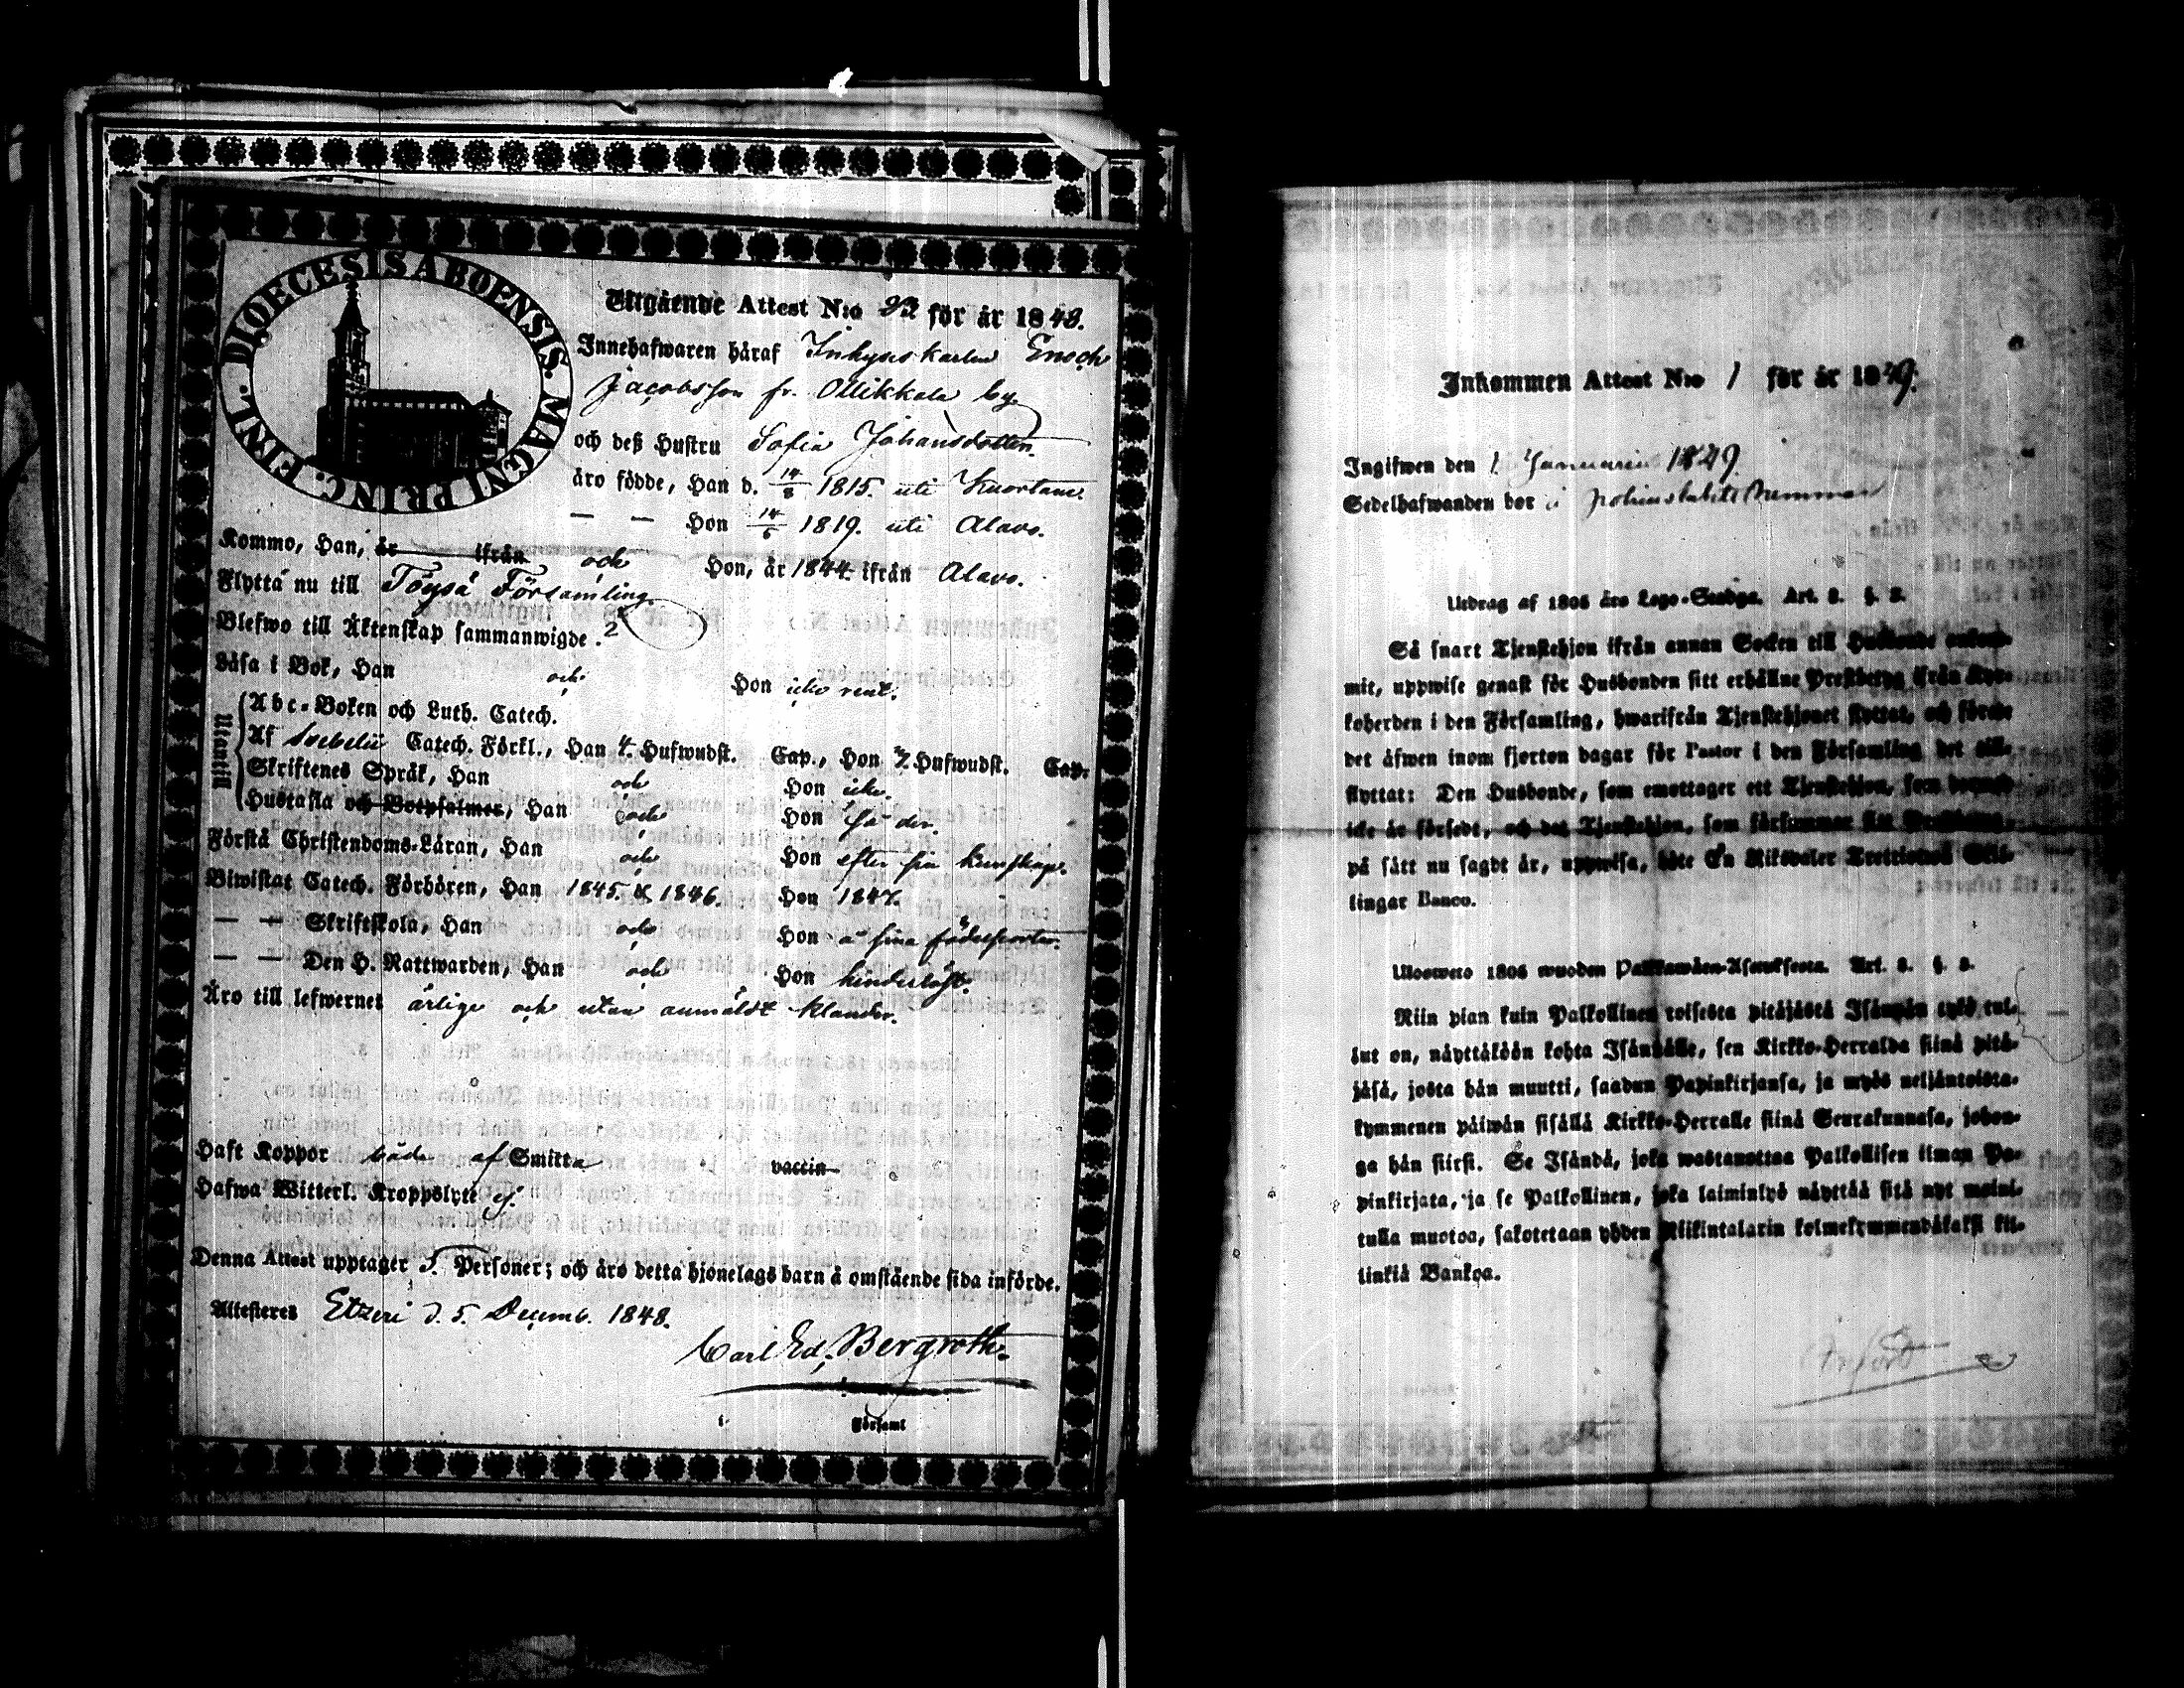 DIOECESIS ABOENSIS. MAGNI PRINC. FINL.
Utgående Attest N:o 92 för år 1848.
Innehafwaren håraf Inhyses karlen Enoch
Jacobsson fr. Ollikkala by
och deß Hustru Sofia Johansdotter
äro födde, Han d. 14/8 1815. uti Kuortane
— — Hon 14/6 1819. uti Alavo.
Kommo, Han, år ifrån och Hon, år 1844. ifrån Alavo.
Flytta nu till Töysä Församling.
Blefwo till Äktenskap sammanwigde. ?
Läsa i Bok, Han och Hon icke rent.
Utantill
Abc-Boken och Luth. Catech.
Af Svebelii Catech. Förkl., Han 4. Hufwudst. Cap., Hon 2. Hufwudst. Cap.
Skriftenes Språk, Han och Hon icke.
Hustafla och Botpsalmer, Han och Hon
Förstå Christendoms-Läran, Han och Hon efter sin kunskap.
Biwistat Catech. Förhören, Han 1845. & 1846. Hon 1847.
— — Skriftskola, Han och Hon å sina födelseorter.
— — Den H. Nattwarden, Han och Hon hinderlöst.
Äro till lefwernet ärlige och utan anmäldt klander.
Haft Koppor både af Smitta vaccin
Hafwa Witterl. Kroppslyte ej.
Denna Attest upptager 5. Personer; och äro detta hjonelags barn å omstående sida införde.
Attesteres Etzeri d. 5. Decemb. 1848.
Carl Ed. Bergroth.
Församl
Inkommen Attest N:o 1 för år 1849.
Ingifwen den 1 Januarii 1849.
Sedelhafwanden bor i
Utdrag af 1805 års Lego-Stadga. Art. 3. §. 3.
Så snart Tjenstehjon ifrån annan Socken till Husbonde ankom-
mit, uppwise genast för Husbonden sitt erhållne Prestbetyg ifrån Kyr-
koherden i den Församling, hwarifrån Tjenstehjonet flyttat, och förete
det äfwen inom fjorton dagar för Pastor i den Församling det till-
flyttat: Den Husbonde, som emottager ett Tjenstehjon, som dermed
icke är försedt, och det Tjenstehjon, som försummar sitt Prestbetyg,
på sätt nu sagdt är, uppwisa, böte En Riksdaler Trettiotwå Skil-
lingar Banco.
Ulosweto 1805 wuoden Palkkawäen-Asetuksesta. Art. 3. §. 3.
Niin pian kuin Palkollinen toisesta pitäjästä Isännän tykö tul-
lut on, näyttäköön kohta Isännälle, sen Kirkko-Herralda siinä pitä-
jäsä, josta hän muutti, saadun Papinkirjansa, ja myös neljäntoista-
kymmenen päiwän sisällä Kirkko-Herralle siinä Seurakunnasa, johon-
ga hän siirsi. Se Isändä, joka wastanottaa Palkollisen ilman Pa-
pinkirjata, ja se Palkollinen, joka laiminlyö näyttää sitä nyt maini-
tulla muotoa, sakotetaan yhden Riikintalarin kolmekymmendäkaksi kil-
linkiä Bankoa.
Infört